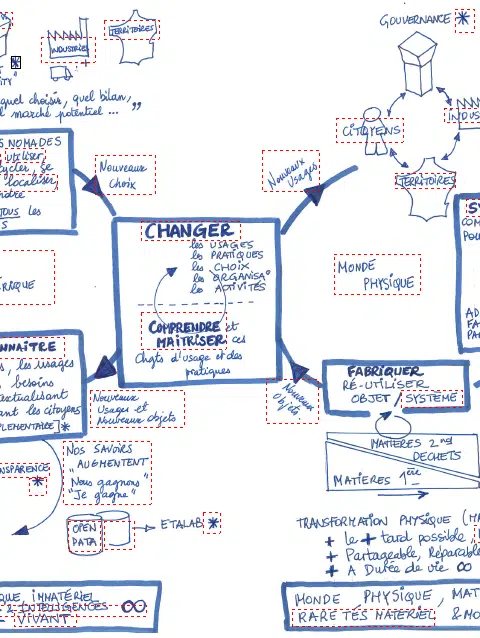 GOUVERNANCE *
INDUSTRIES
TERRITOIRES
quel choisir, quel bilan,
marché potentiel ... "
CITOYENS
TERRITOIRES
NOMADES
utiliser,
localiser,
TOUS les
Nouveaux
choix
Nouveaux
Usages
CHANGER
les USAGES
les PRATIQUES
les CHOIX
les ORGANISA°
les ACTIVITÉS
COMPRENDRE et
MAITRISER ces
Chgts d'usage et des
pratiques
MONDE
PHYSIQUE
les usages
besoins
les citoyens
Nouveaux
Usages et
Nouveaux Objets
Nouveaux
Objets
FABRIQUER
RÉ-UTILISER
OBJET / SYSTÈME
MATIÈRES 2nd
DECHETS
MATIÈRES 1ère
NOS SAVOIRS
"AUGMENTENT
"Nous gagnons"
"Je gagne"
OPEN
DATA
→ ETALAB *
TRANSFORMATION PHYSIQUE
+ Le + tard possible,
+ Partageable, Réparable
+ A Durée de vie ∞
IMMATÉRIEL
& INTELLIGENCES ∞
VIVANT
MONDE PHYSIQUE, MAT
RARETÉS MATERIEL &